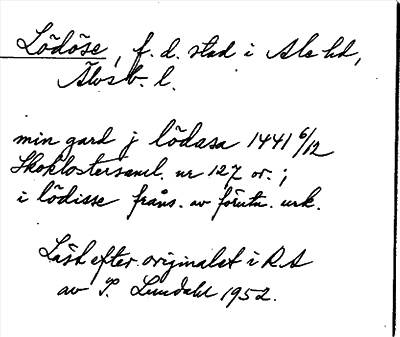 Lödöse, f. d. stad i Ale hd,
Älvsb. l.
min gard j lödasa 1441 6/12
Skoklostersaml. nr 127 or.;
i lödisse frans. av förutn. urk.
Läst efter originalet i RA
av P. Lundahl 1952.